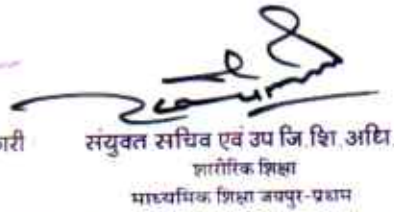 संयुक्त सचिव एवं उप जि.शि.अधि.
शारीरिक शिक्षा
माध्यमिक शिक्षा जयपुर-प्रथम